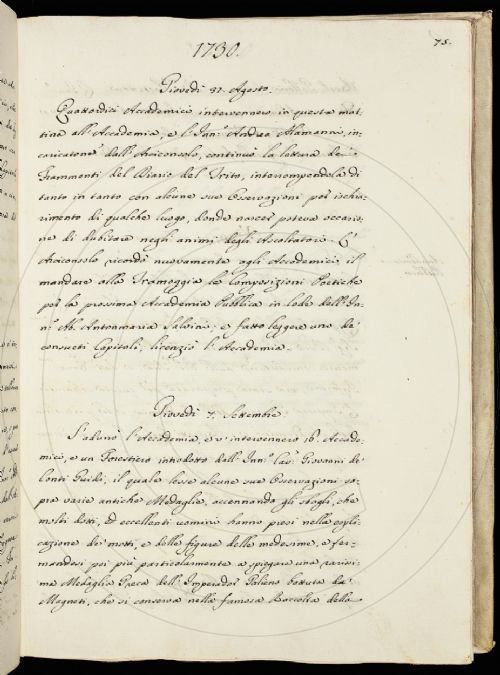 75.
1730.
Giovedì 31. Agosto.
Quattordici Accademici intervennero in questa mat-
tina all'Accademia, e l'Inn.º Andrea Alamanni, in-
caricatone dall'Arciconsolo, continuò la lettura de'
Frammenti del Diario del Trito, interrompendola di
tanto in tanto con alcune sue Osservazioni per ischia-
rimento di qualche luogo, donde nascer poteva occasio-
ne di dubitare negli animi degli Ascoltatori. L'
Arciconsolo ricordò nuovamente agli Accademici, il
mandare alla Tramoggia le Composizioni Poetiche
per la prossima Accademia Pubblica in lode dell'In-
n.º Ab. Antonmaria Salvini; e fatto leggere uno de'
consueti Capitoli, licenziò l'Accademia.
Giovedì 7. Settembre.
S'adunò l'Accademia, e v'intervennero 16. Accade-
mici, e un Forestiero introdotto dall'Inn.º Cav. Giovanni de'
Conti Guidi, il quale lesse alcune sue Osservazioni so-
pra varie antiche Medaglie, accennando gli sbagli, che
molti dotti, ed eccellenti uomini hanno presi nella espli-
cazione de' motti, e delle figure delle medesime, e fer-
mandosi poi più particolarmente a spiegare una raris-
ma Medaglia Greca dell'Imperador Galieno battuta da'
Magneti, che si conserva nella famosa Raccolta della